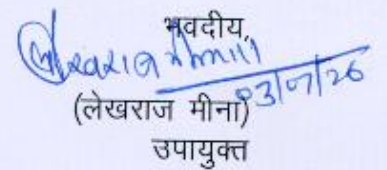 भवदीय,
03/07/26
(लेखराज मीना)
उपायुक्त